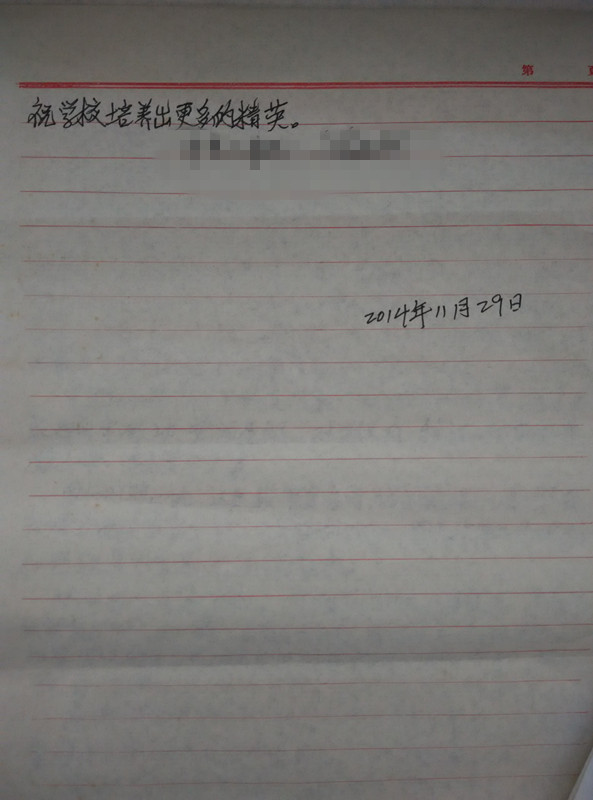 第
祝学校培养出更多的精英。
2014年11月29日